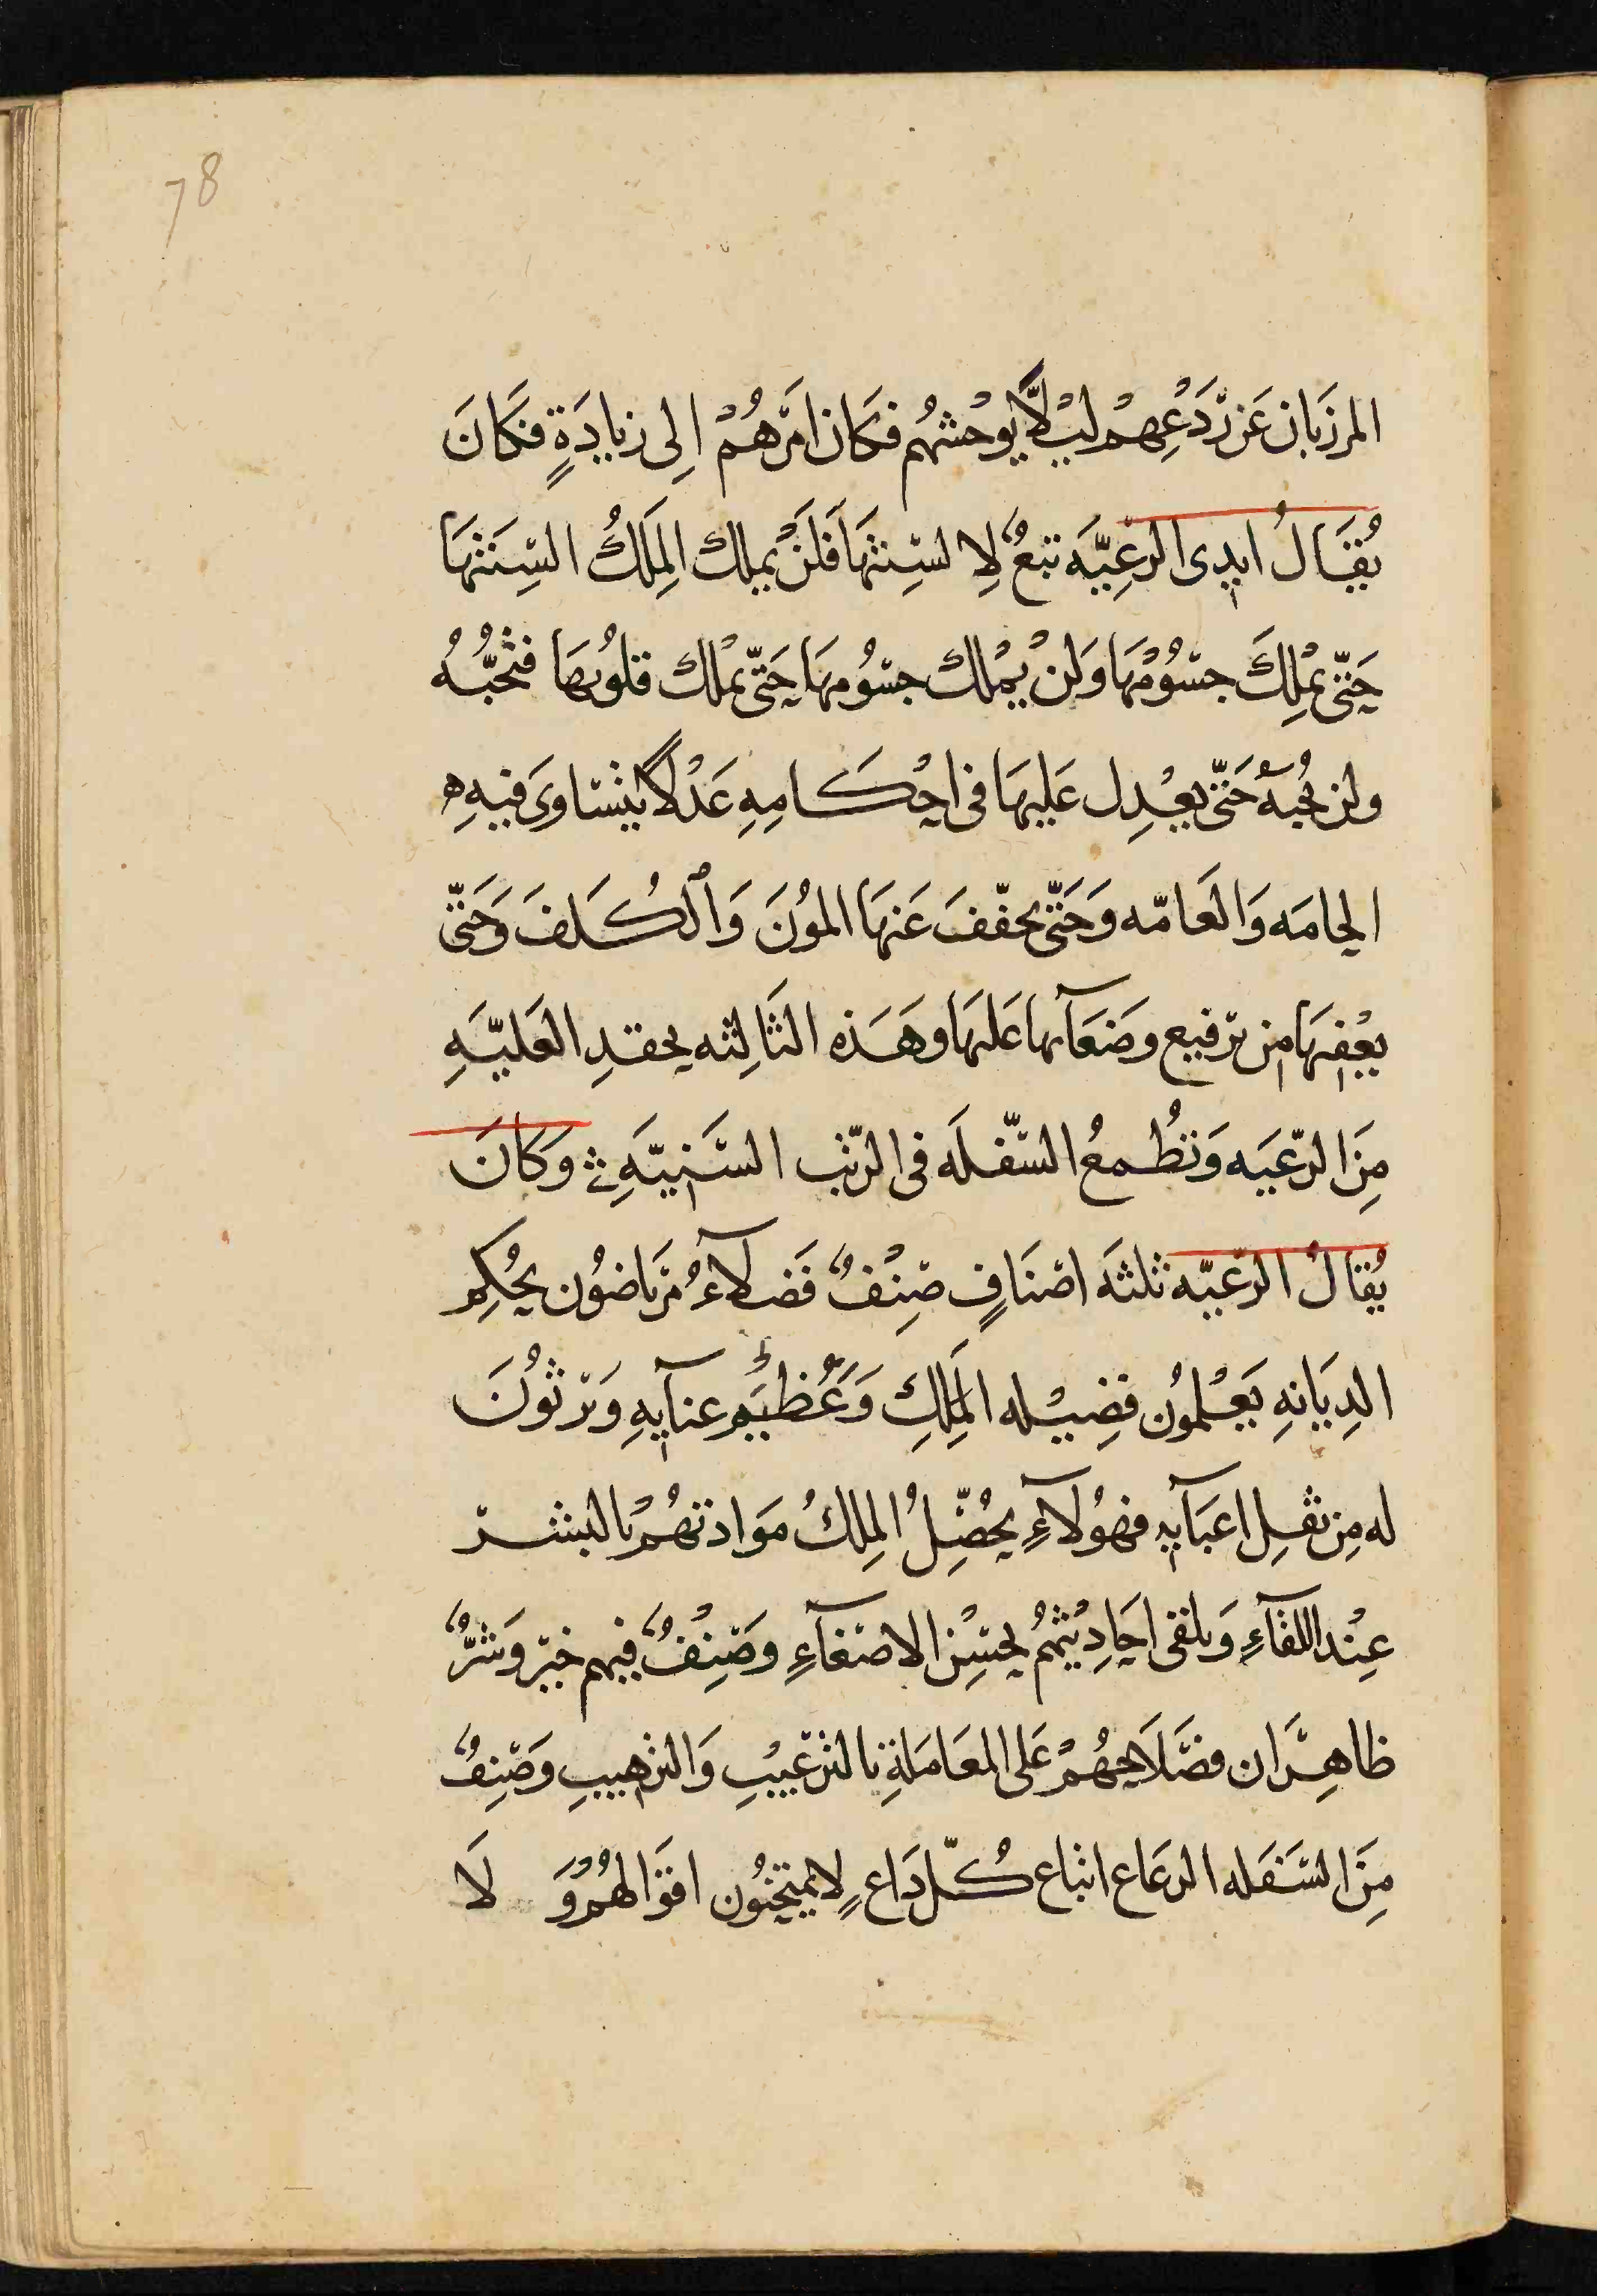 78
المرزَبان عَن رَدَعْهِمْ ليْلَّا يوْحشهُم فكَان امرَهُمْ الِى زيادَةٍ فكَانَ
يُقَالُ ايدِى الرعِيَّه تبَعٌ لِالسِنتهَا فَلَنْ يملك المَلِكُ السِنَتهَا
حَتّى يمْلِكَ جسُوُمْهَا وَلنْ يمْلك جسُومهَا حَتّى يمْلك قلُوبهَا فتُحبُّهُ
ولن تُحبهُ حَتّى يعْدِل عَليهَا فى احْكَامِهِ عَدْلاً يتسَاوى فيهِ
الخامَه وَالعَامّه وَحَتّى يخفّفَ عَنهَا المؤنَ وَالكُلفَ وَحَتّى
يعْفِيهَا مِن ترفيع وضَعَآئها عَليهَا وهَذه الثَالِثه تحقدِ العَليّهِ
مِنَ الرّعيَه وَتطُمعُ السّفلَه فى الرّتب السَنيَّهِ وَكَانَ
يُقالُ الرّعيّه ثلثهَ اصنَافٍ صِنْفٌ فَضلآءُ مرتَاضُون بحُكمِ
الدِيَانهِ يَعْلموُن فضِيْله المَلِكِ وَعُظيَم عنآيهِ وَيرثوُنَ
له مِن ثقلِ اعبَآيهِ فهوُلآءِ يحُصّلُ المِلكُ مَوَادتهُمْ بالبشر
عِنْد اللقآءِ وَيلقى احَادِيْثهُم بحُسْن الاصغآءِ وصَنِفٌ فيهم خيْر وَشَرٌّ
ظاهِرَان فصَلَاحهُمْ عَلى المعَامَلةِ بالترْغيْبِ وَالترهِيبِ وَصَنِفٌ
مِنَ السَفله الرعَاع اتباع كُلّ دَاعٍ لا يمتحنُون اقوَالهُمْ وَ لَا